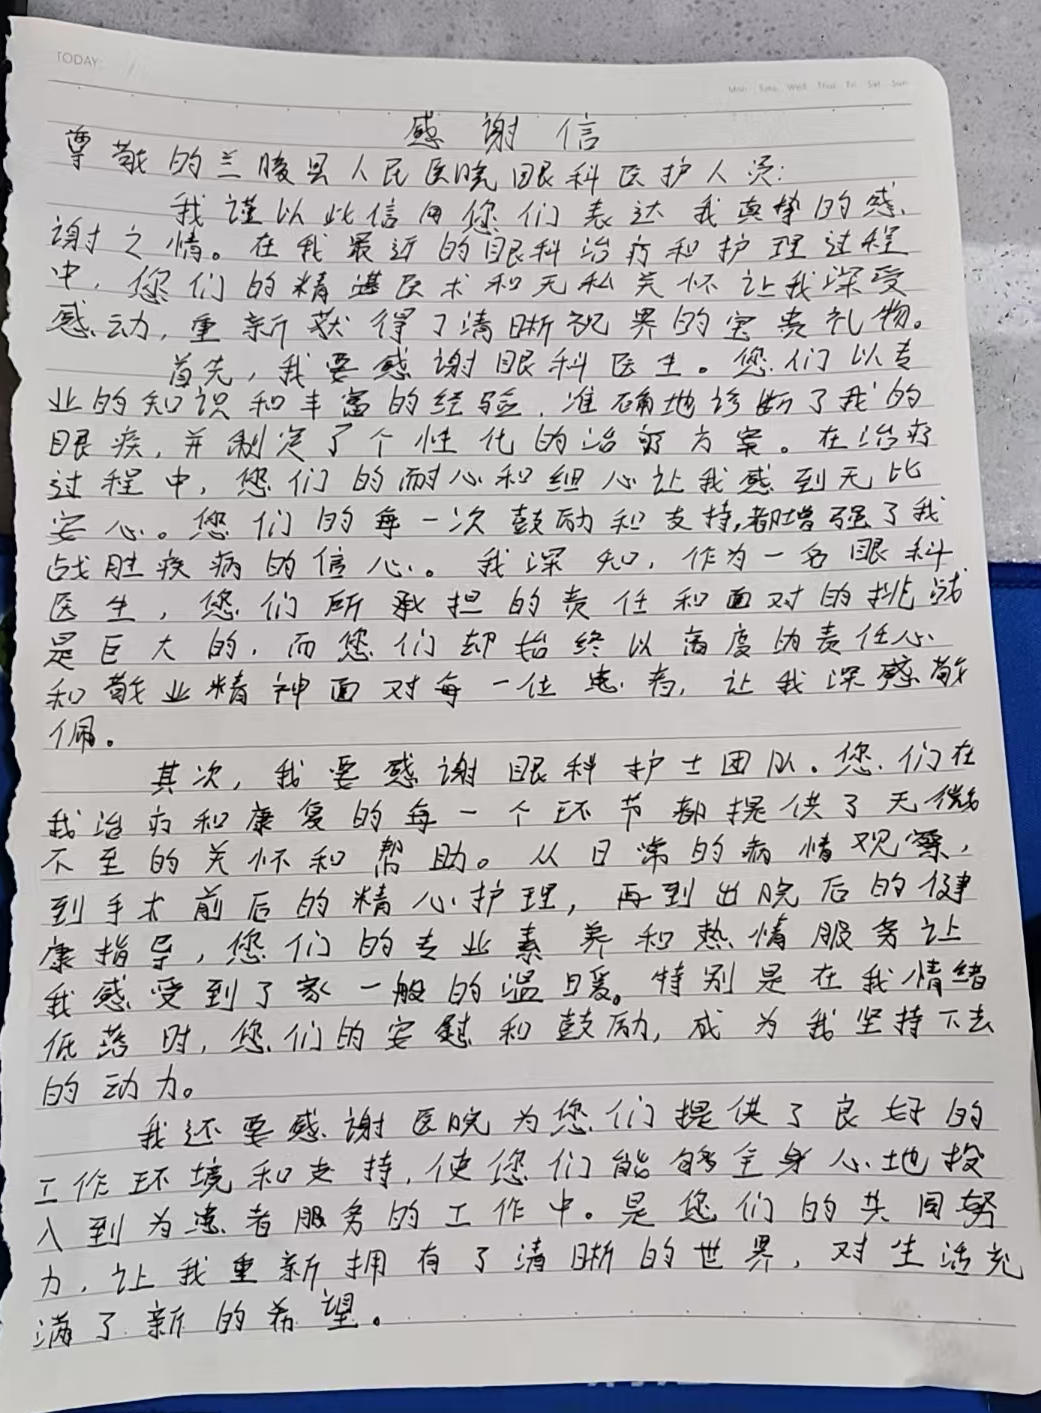 TODAY
Mon Tues Wed Thur Fri Sat Sun
感谢信
尊敬的兰陵县人民医院眼科医护人员:
我谨以此信向您们表达我真挚的感
谢之情。在我最近的眼科治疗和护理过程
中,您们的精湛医术和无私关怀让我深受
感动,重新获得了清晰视界的宝贵礼物。
首先,我要感谢眼科医生。您们以专
业的知识和丰富的经验,准确地诊断了我的
眼疾,并制定了个性化的治疗方案。在治疗
过程中,您们的耐心和细心让我感到无比
安心。您们的每一次鼓励和支持,都增强了我
战胜疾病的信心。我深知,作为一名眼科
医生,您们所承担的责任和面对的挑战
是巨大的,而您们却始终以高度的责任心
和敬业精神面对每一位患者,让我深感敬
佩。
其次,我要感谢眼科护士团队。您们在
我治疗和康复的每一个环节都提供了无微
不至的关怀和帮助。从日常的病情观察,
到手术前后的精心护理,再到出院后的健
康指导,您们的专业素养和热情服务让
我感受到了家一般的温暖。特别是在我情绪
低落时,您们的安慰和鼓励,成为我坚持下去
的动力。
我还要感谢医院为您们提供了良好的
工作环境和支持,使您们能够全身心地投
入到为患者服务的工作中。是您们的共同努
力,让我重新拥有了清晰的世界,对生活充
满了新的希望。